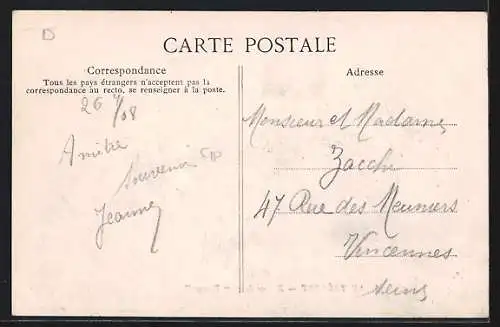 D
CARTE POSTALE
Correspondance
Tous les pays étrangers n'acceptent pas la
correspondance au recto, se renseigner à la poste.
26 /08
Amitié
Souvenir
Jeanne
Adresse
Monsieur et Madame
Zacchi
47 Rue des Meuniers
Vincennes
Seine